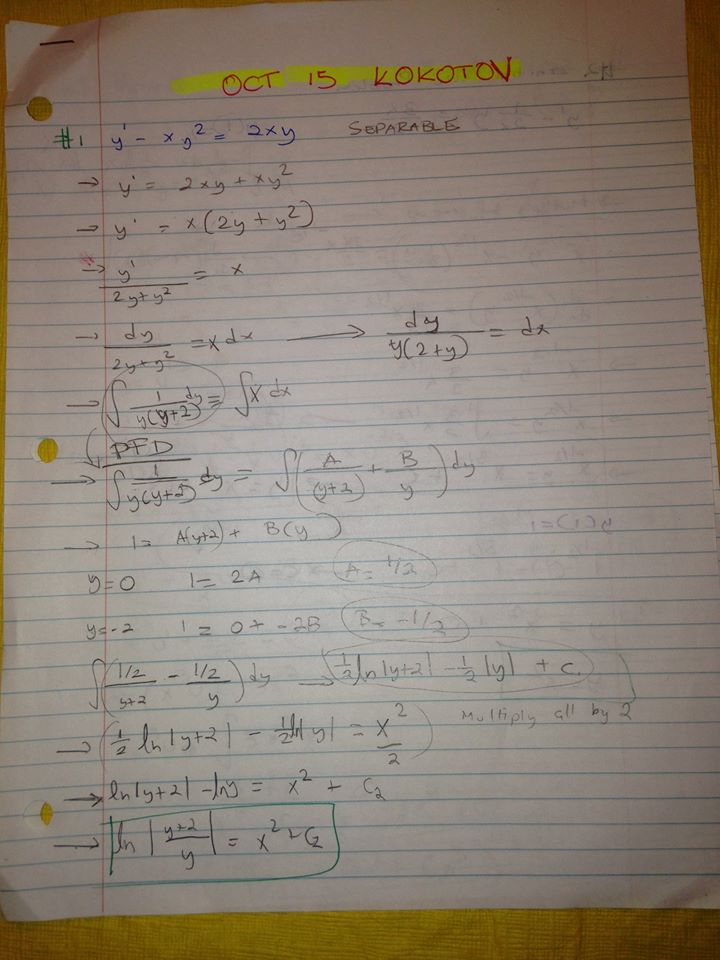 OCT 15 KOKOTOV
#1 y' - xy² = 2xy SEPARABLE
→ y' = 2xy + xy²
→ y' = x(2y + y²)
→ y'/(2y+y²) = x
→ dy/(2y+y²) = x dx → dy/(y(2+y)) = dx
→ ∫ 1/(y(y+2)) dy = ∫ x dx
PFD
→ ∫ 1/(y(y+2)) dy = ∫ (A/(y+2) + B/y) dy
→ 1 = A(y+2) + B(y)
y=0 1 = 2A A = 1/2
y=-2 1 = 0 + -2B B = -1/2
∫ ((1/2)/(y+2) - (1/2)/y) dy → 1/2 ln|y+2| - 1/2 |y| + C.
→ (1/2 ln|y+2| - 1/2 ln|y| = x²/2) Multiply all by 2
→ ln|y+2| - ln y = x² + C₂
→ ln |(y+2)/y| = x² + C₂